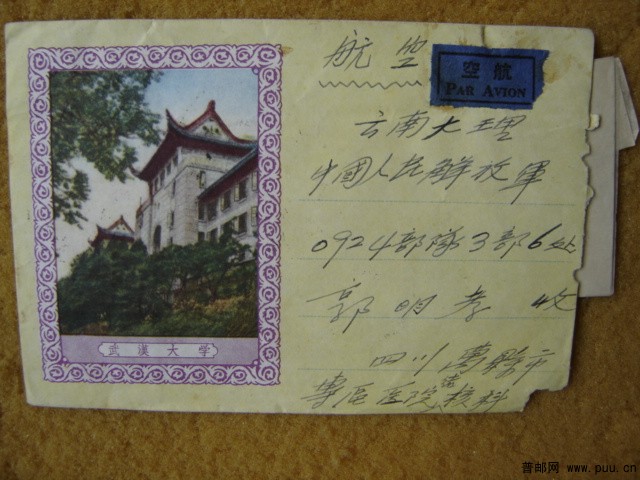 航空
空航
PAR AVION
云南大理
中國人民解放軍
0924部隊3部6处
郭明孝 收
四川萬縣市
專區医院结核科
武漢大学
普邮网 www.puu.cn